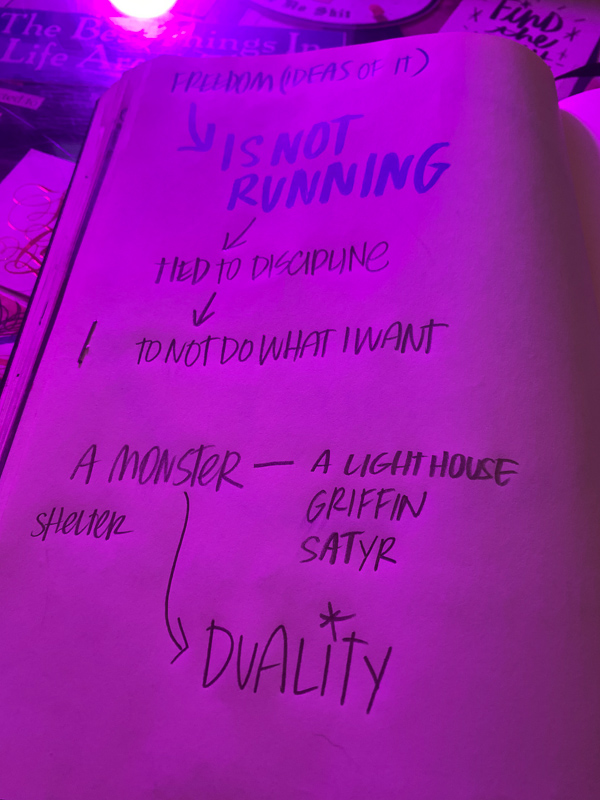 The Be Things In
Life Are
Find
me
FREEDOM (IDEAS OF IT)
IS NOT
RUNNING
TIED TO DISCIPLINE
TO NOT DO WHAT I WANT
A MONSTER — A LIGHTHOUSE
SHELTER GRIFFIN
SATYR
DUALITY*